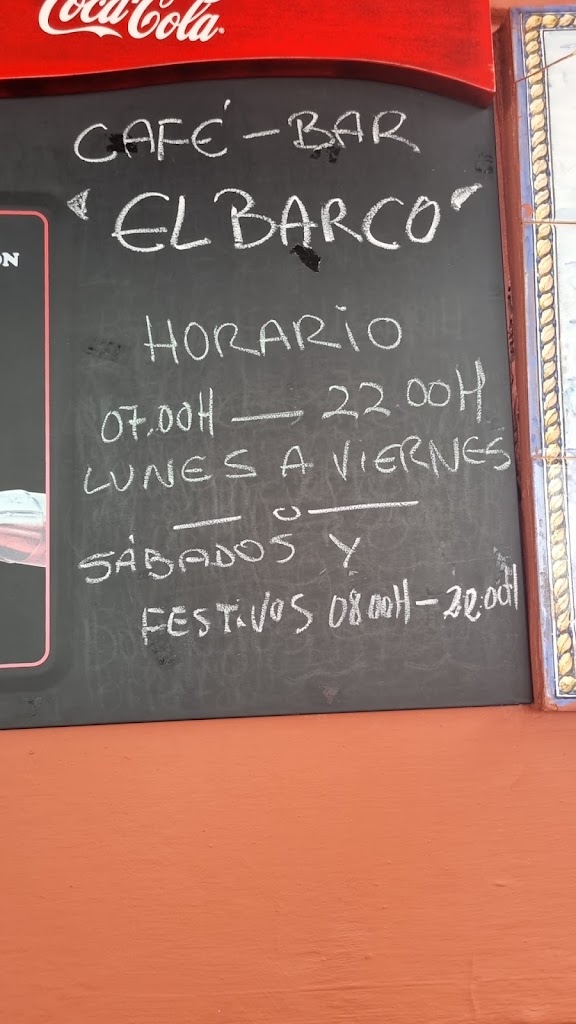 Coca-Cola
ON
CAFÉ - BAR
"EL BARCO"
HORARIO
07.00H — 22.00H
LUNES A VIERNES
— o —
SÁBADOS Y
FESTIVOS 08.00H - 22.00H